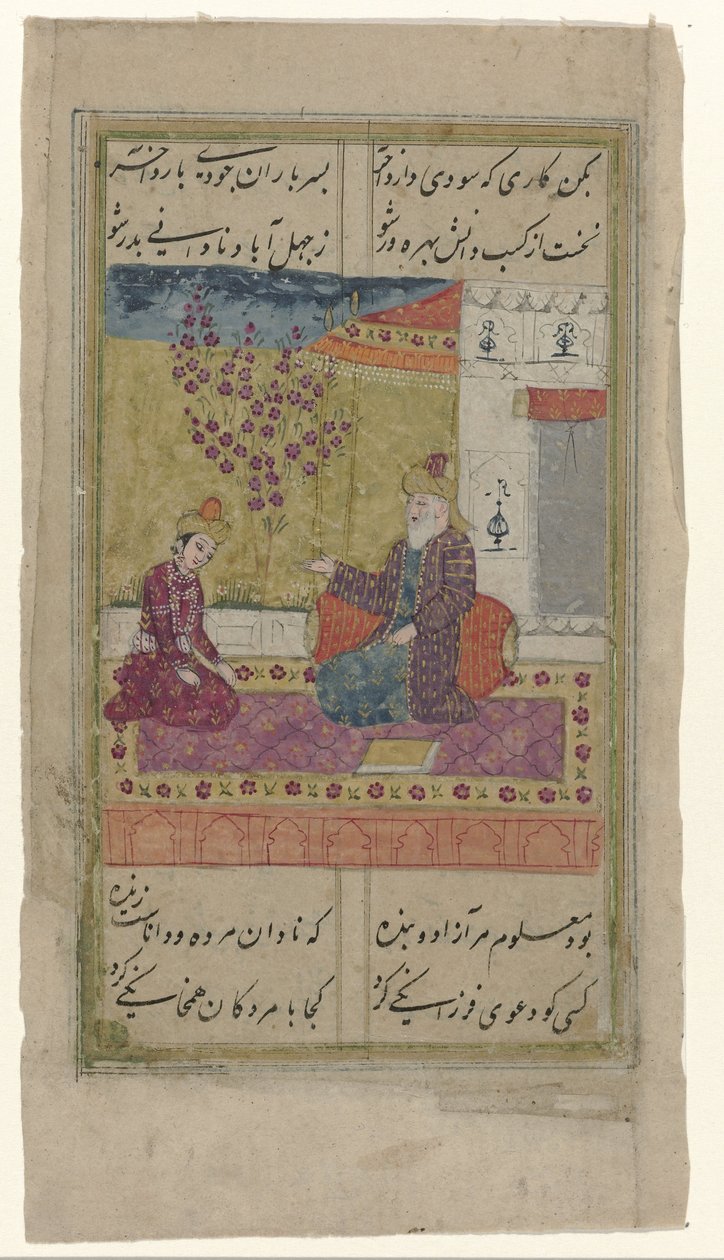 بکن کاری که سودی دارد آخر
بسر باران جودی بارد آخر
نخست از کسب دانش بهره ور شو
ز جهل آباد نادانی بدر شو
بود معلوم هر آزاد و بنده
که نادان مرده و داناست زنده
کسی کو دعوی فرزانکی کرد
کجا با مردکان همخانکی کرد